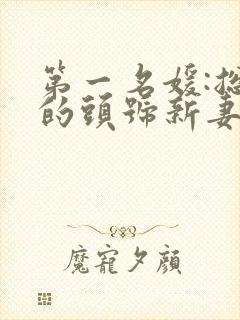 第一名媛:總
的頭號新妻
魔寵夕顏